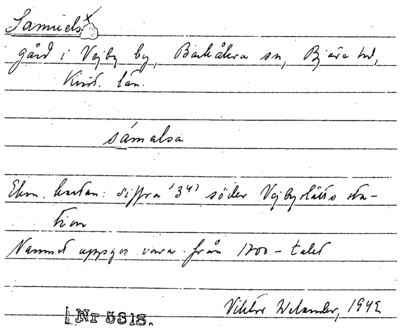 Samuels x
gård i Vejby by, Barkåkra sn, Bjäre hd,
Krist. län.
sámalsa
Ekon. kartan: siffra '34' söder Vejbyslätts sta-
tion
Namnet uppges vara från 1700-talet
Nr 5318.
Viktor Welander, 1942